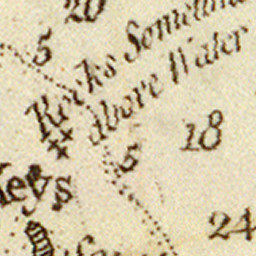 20
5
Rocks Sometimes
above Water
18
5
Keys
24